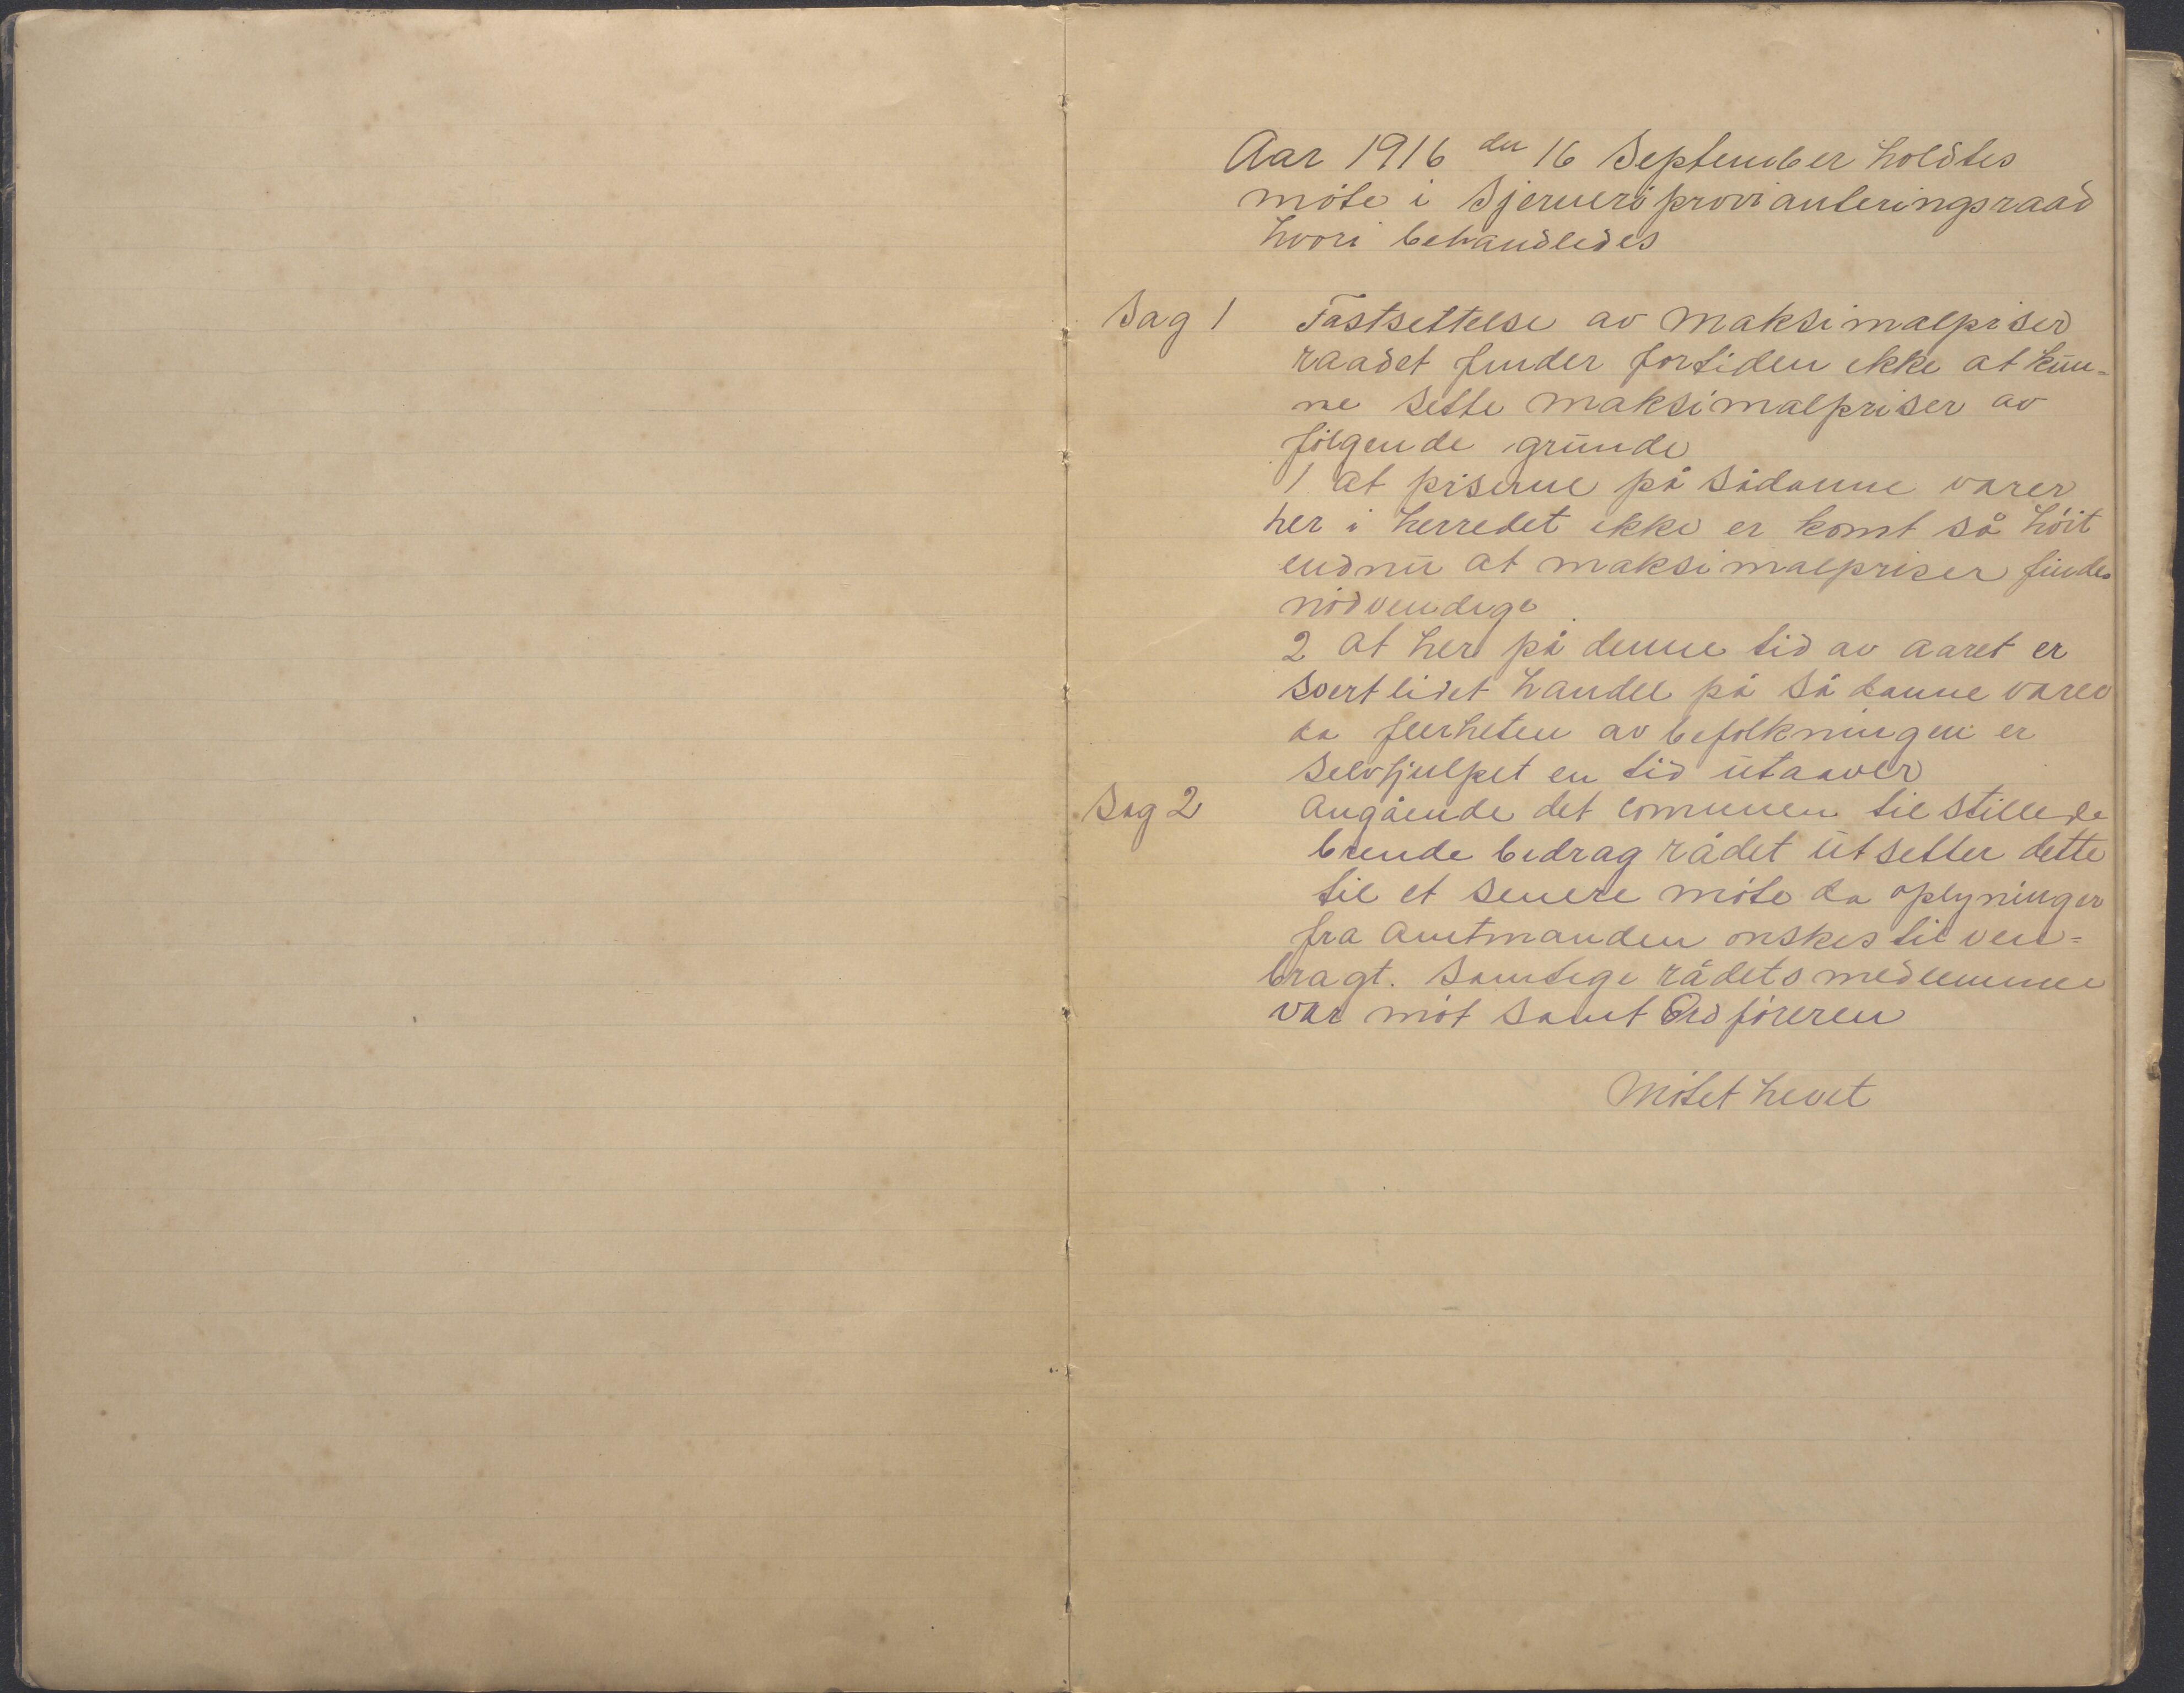 Aar 1916 den 16 September holdtes
möte i Gjerverö provianteringsraad
hvori behandledes
Sag 1 Fastsettelse av maksimalpriser
raadet finder fortiden ikke at kun=
ne sette maksimalpriser av
fölgende grunde
1 at priserne på sådanne varer
her i herredet ikke er komt så höit
endnu at maksimalpriser findes
nödvendige
2 at her på denne tid av aaret er
svert lidet handel på sådanne varer
da fleerheten av befolkningen er
selvhjulpet en tid utaaver
Sag 2 Angående det comunen tilstillede
brende bedrag rådet utsetter dette
til et senere möte da oplyninger
fra Amtmanden onskes tilveie=
bragt. Samtlige rådets medlemmer
var möt samt Ordföreren
Mötet hevet